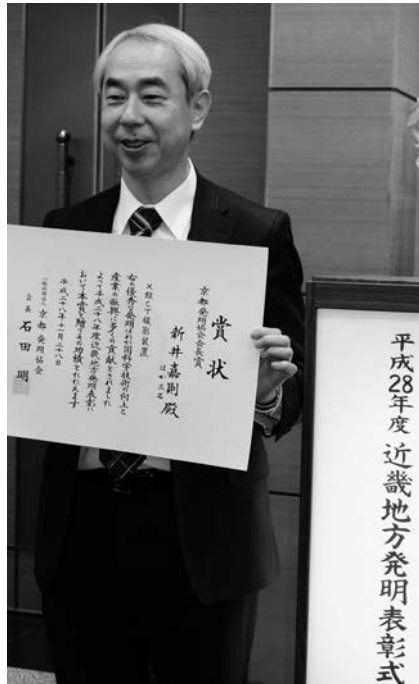 賞状
京都発明協会会長賞
新井嘉則殿
ほか三名
X線CT撮影装置
右の優秀な発明はわが国科学技術の向上と
産業の振興に多くの貢献をされました
よって平成二十八年度近畿地方発明表彰に
おいて本賞を贈りその功績をたたえます
平成二十八年十一月二十八日
一般社団法人 京都発明協会
会長 石田明
平成28年度 近畿地方発明表彰式